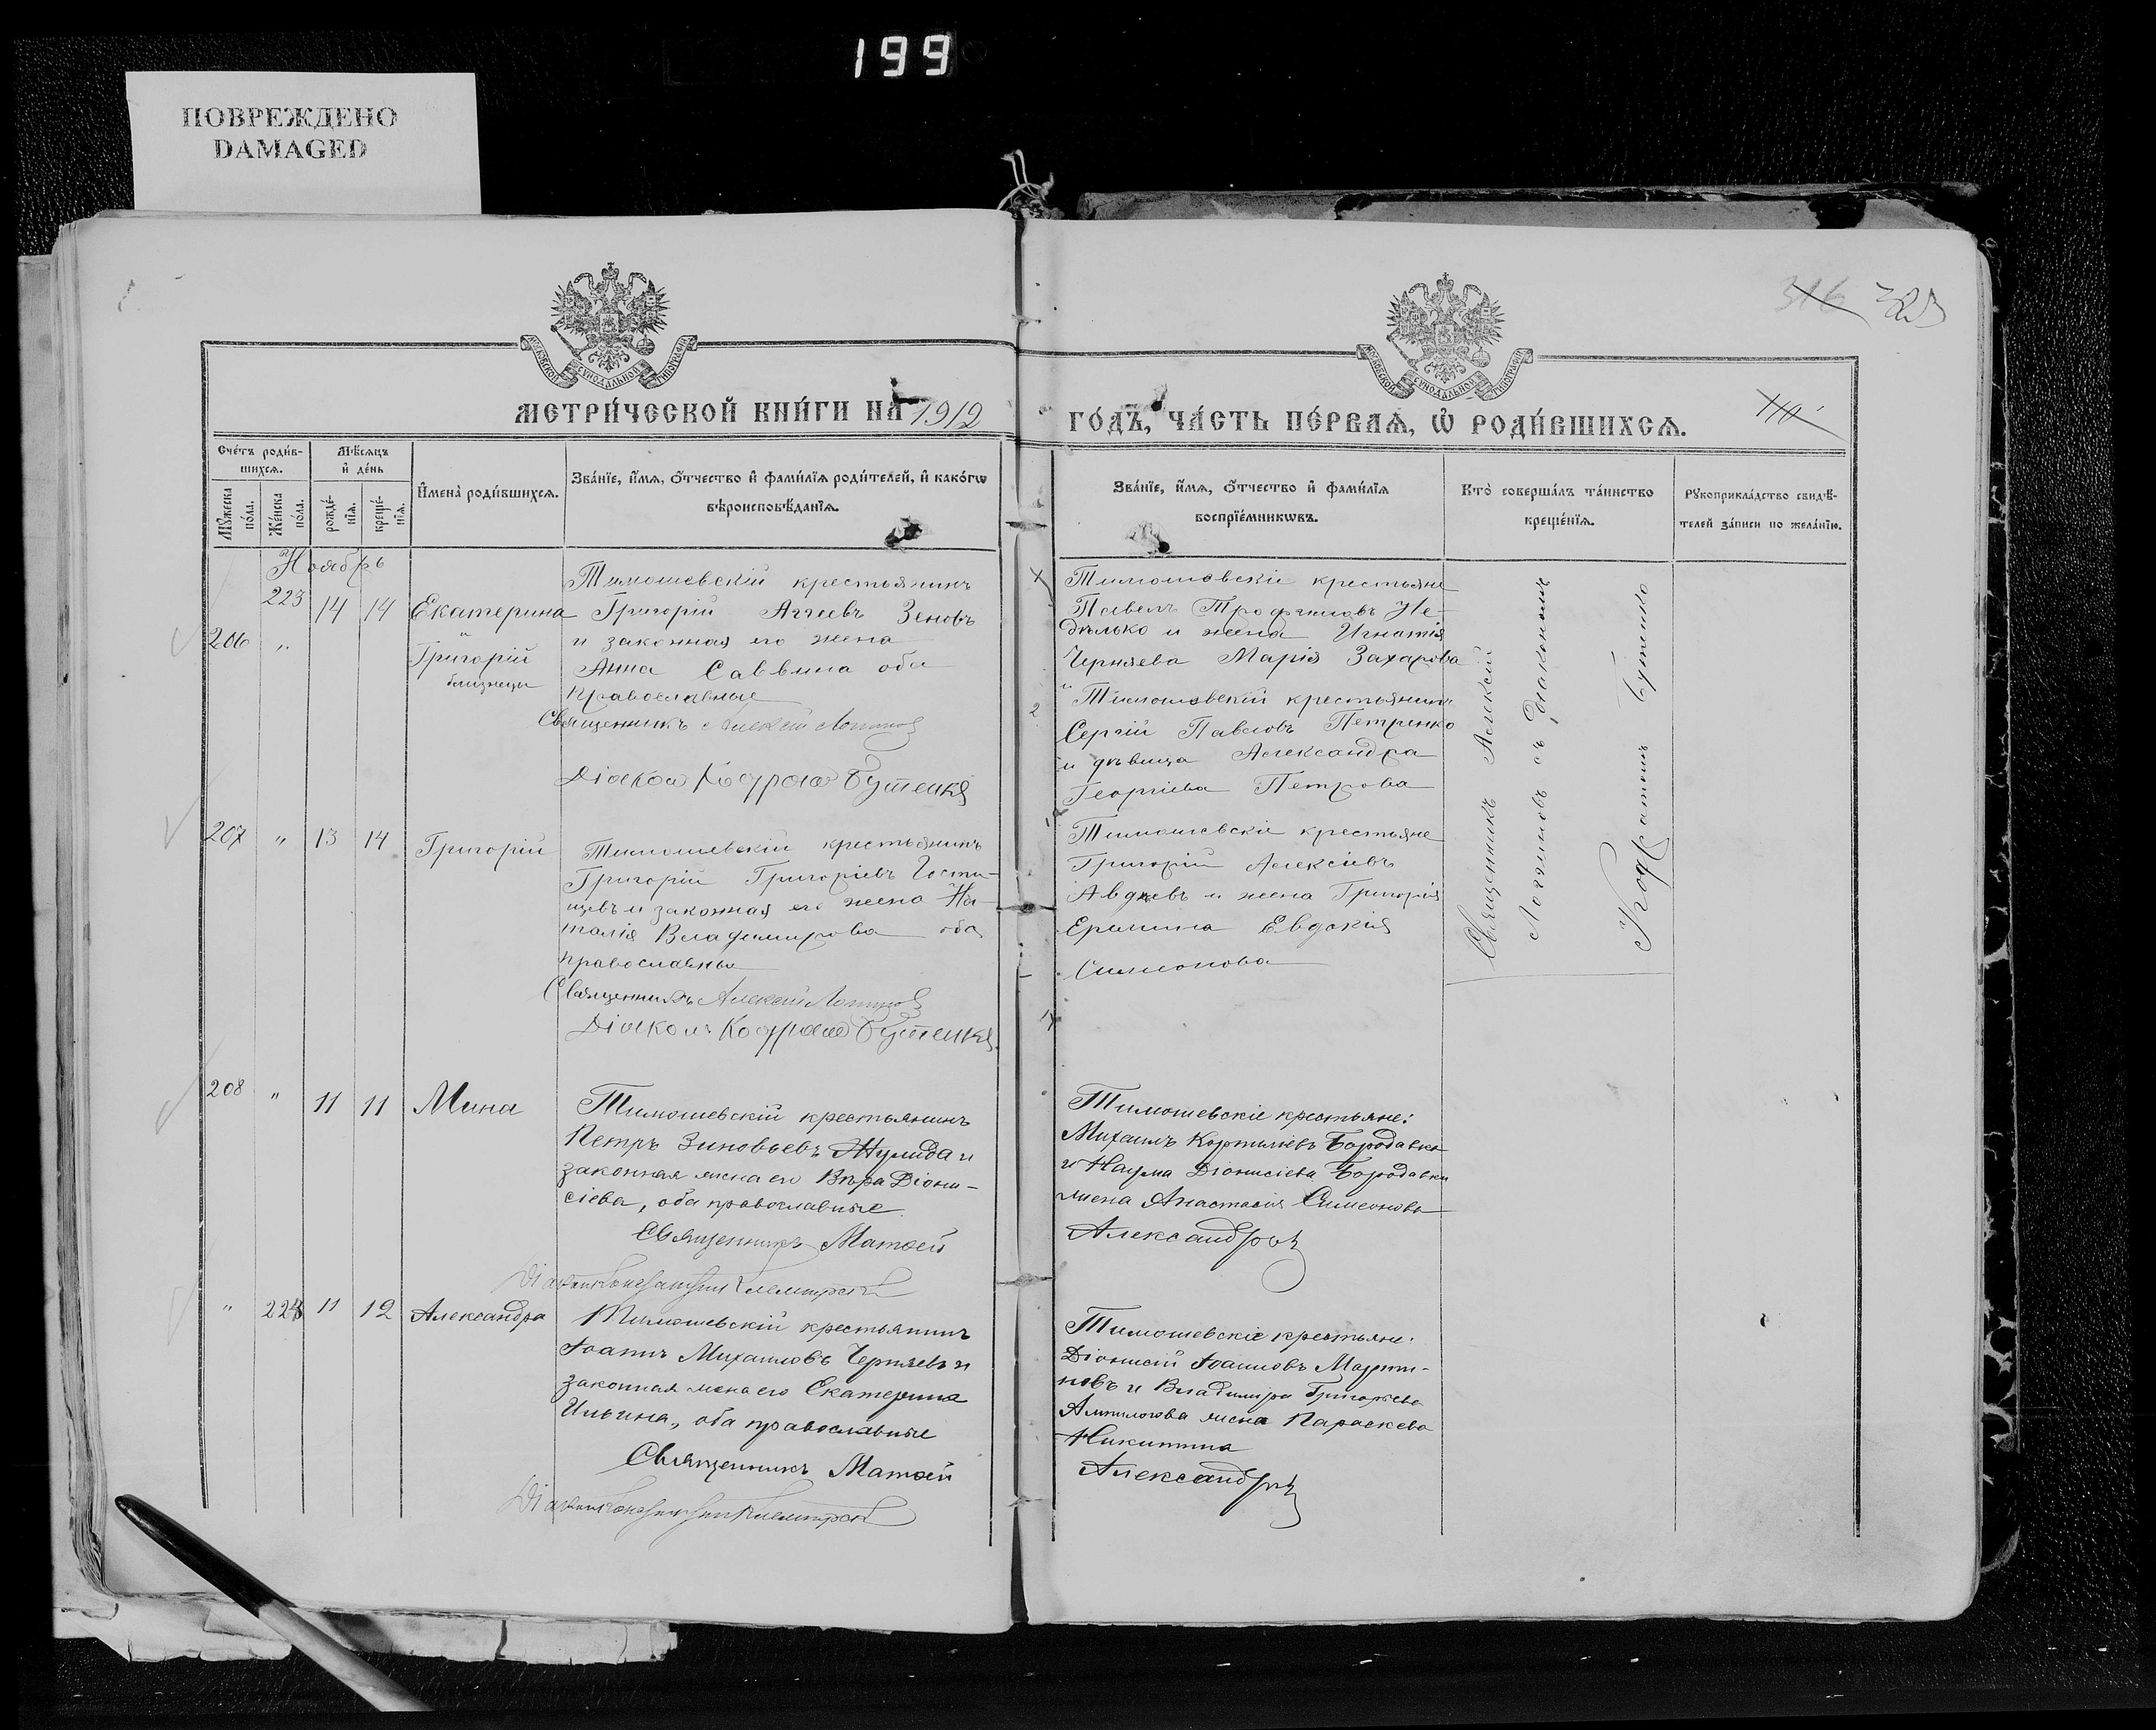 199
ПОВРЕЖДЕНО
DAMAGED
316 323
110
МОСКОВСКОЙ СѴНОДАЛЬНОЙ ТИПОГРАФІИ
МОСКОВСКОЙ СѴНОДАЛЬНОЙ ТИПОГРАФІИ
МЕТРИ́ЧЕСКОЙ КНИ́ГИ НА 1912
ГО́ДЪ, ЧА́СТЬ ПЕ́РВАѦ, Ѡ РОДИ́ВШИХСѦ.
Сче́тъ роди́в-
шихсѧ.
Мꙋ́жеска по́ла.
Же́нска по́ла.
Мѣ́сѧцъ и҆ де́нь
рожде́-
нїѧ.
креще́-
нїѧ.
И҆мена̀ роди́вшихсѧ.
Зва́нїе, и҆́мѧ, о҆́тчество и҆ фами́лїѧ роди́телей, и҆ како́гѡ
вѣроисповѣ́данїѧ.
Зва́нїе, и҆́мѧ, о҆́тчество и҆ фами́лїѧ
воспрїе́мникѡвъ.
Кто̀ соверша́лъ та́инство
креще́нїѧ.
Рꙋкоприкла́дство свидѣ́-
телей за́писи по жела́нїю.
Ноябрь
223 14 14 Екатерина
206 "
" Григорій
близнецы
Тимошевскій крестьянинъ
Григорій Аггеевъ Зеновъ
и законная его жена
Анна Саввина оба
православные
Священникъ Алексій Логиновъ
Діаконъ Кодратъ Бутенко
Тимошевскіе крестьяне
Павелъ Трофимовъ Не-
дѣлько и жена Игнатія
Черняева Марія Захарова
2 " Тимошевскій крестьянинъ
Сергій Павловъ Петренко
и дѣвица Александра
Георгіева Петрова
Священникъ Алексій
Логгиновъ съ діакономъ
Кодратомъ Бутенко
207 " 13 14 Григорій
Тимошевскій крестьянинъ
Григорій Григоріевъ Гости-
щевъ и законная его жена На-
талія Владимирова оба
православные
Священникъ Алексій Логиновъ
Діаконъ Кодратъ Бутенко
Тимошевскіе крестьяне
Григорій Алексіевъ
Авдѣевъ и жена Григорія
Еремина Евдокія
Симеонова
208 " 11 11 Мина
Тимошевскій крестьянинъ
Петръ Зиновьевъ Жулида и
законная жена его Вѣра Діони-
сіева, оба православные
Священникъ Матѳей
Діаконъ
Тимошевскіе крестьяне:
Михаилъ Корниліевъ Бородавка
и Наума Діонисіева Бородавки
жена Анастасія Симеонова
Александровъ
" 224 11 12 Александра
Тимошевскій крестьянинъ
Іоаннъ Михаиловъ Черняевъ и
законная жена его Екатерина
Ильина, оба православные
Священникъ Матѳей
Діаконъ
Тимошевскіе крестьяне:
Діонисій Іоанновъ Марти-
новъ и Владимира Григорьева
Ампилогова жена Параскева
Никитина
Александровъ